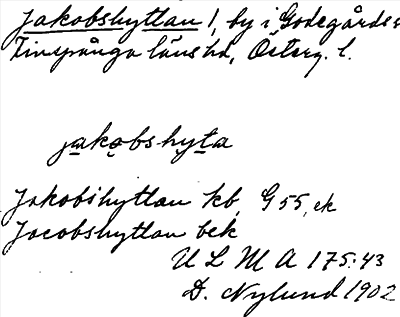 Jakobshyttan 1, by i Godegårds s
Finspånga länshd, Österg. l.
jakobshyta
Jakobshyttan kb, G 55, ek
Jacobshyttan bek
U L M A 175:43
D. Nylund 1902